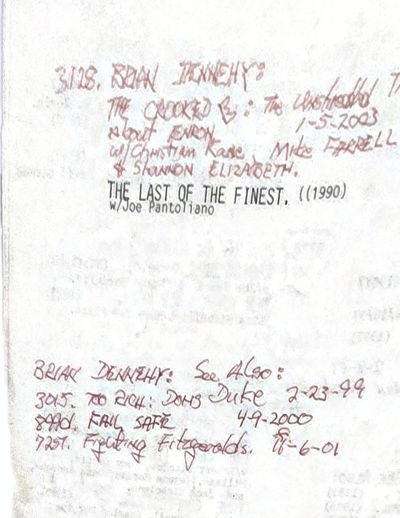 3128. BRIAN DENNEHY:
THE CROOKED E: The Unshredded T
About ENRON. 1-5-2003
w/Christian Kane, Mike FARRELL
& SHANNON ELIZABETH.
THE LAST OF THE FINEST. ((1990)
w/Joe Pantoliano
BRIAN DENNEHY: See Also:
3015. TOO RICH: DORIS Duke 2-23-99
FAIL SAFE 4-9-2000
7251. Fighting Fitzgeralds. -6-01